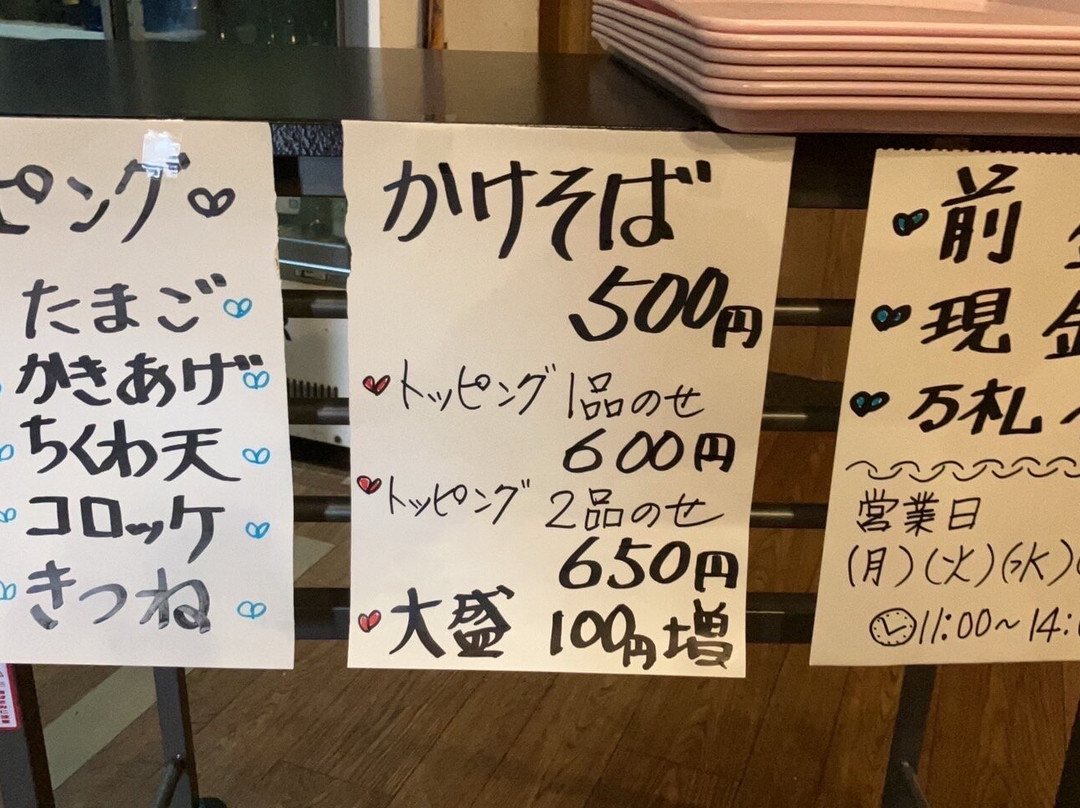 ピング
たまご
かきあげ
ちくわ天
コロッケ
きつね
かけそば
500円
トッピング 1品のせ
600円
トッピング 2品のせ
650円
大盛 100円増
前
現金
万札
営業日
(月)(火)(水)(
11:00~14: